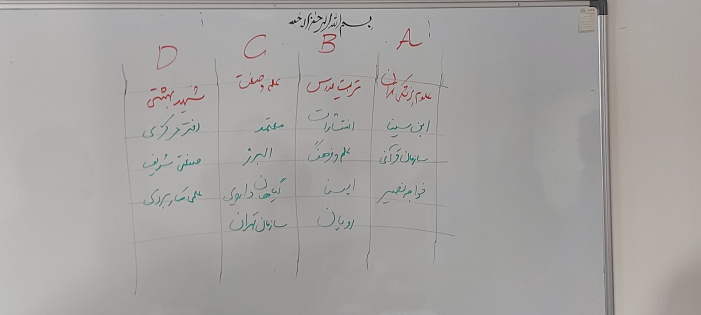 بسم الله الرحمن الرحیم
A B C D
علوم پزشکی تهران تربیت مدرس علم و صنعت شهید بهشتی
ابن سینا انتشارات معتمد دفتر مرکزی
سازمان قرآنی علم و فرهنگ البرز صنعتی شریف
خواجه نصیر ایسنا گیاهان دارویی علمی کاربردی
رویان سازمان تهران